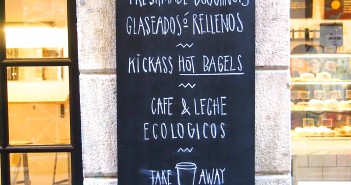 GLASEADOS ó RELLENOS
KICKASS HOT BAGELS
CAFE & LECHE
ECOLOGICOS
TAKE AWAY